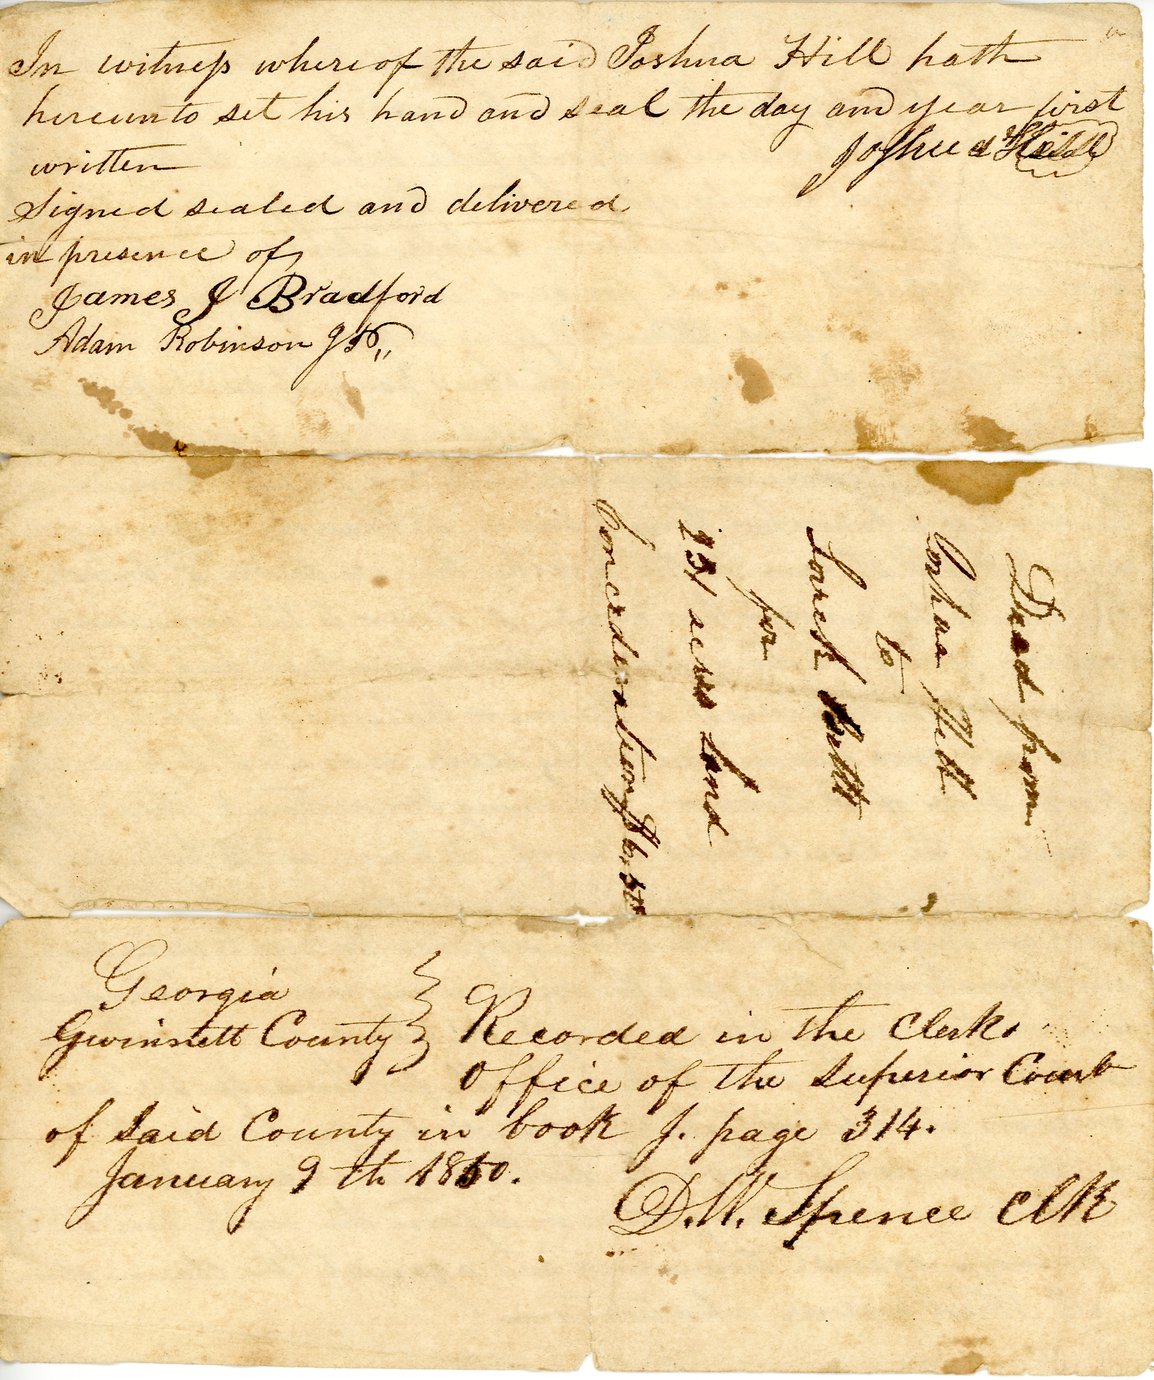 In witness whereof the said Joshua Hill hath
hereunto set his hand and seal the day and year first
written
Joshua Hill
Signed sealed and delivered
in presence of
James J Bradford
Adam Robinson J P
Deed from
Joshua Hill
to
for
131 acres land
Concideration $
Georgia
Gwinnett County
Recorded in the Clerks
Office of the Superior Court
of Said County in book J. page 314.
January 9th 1850.
D. W. Spence Clk